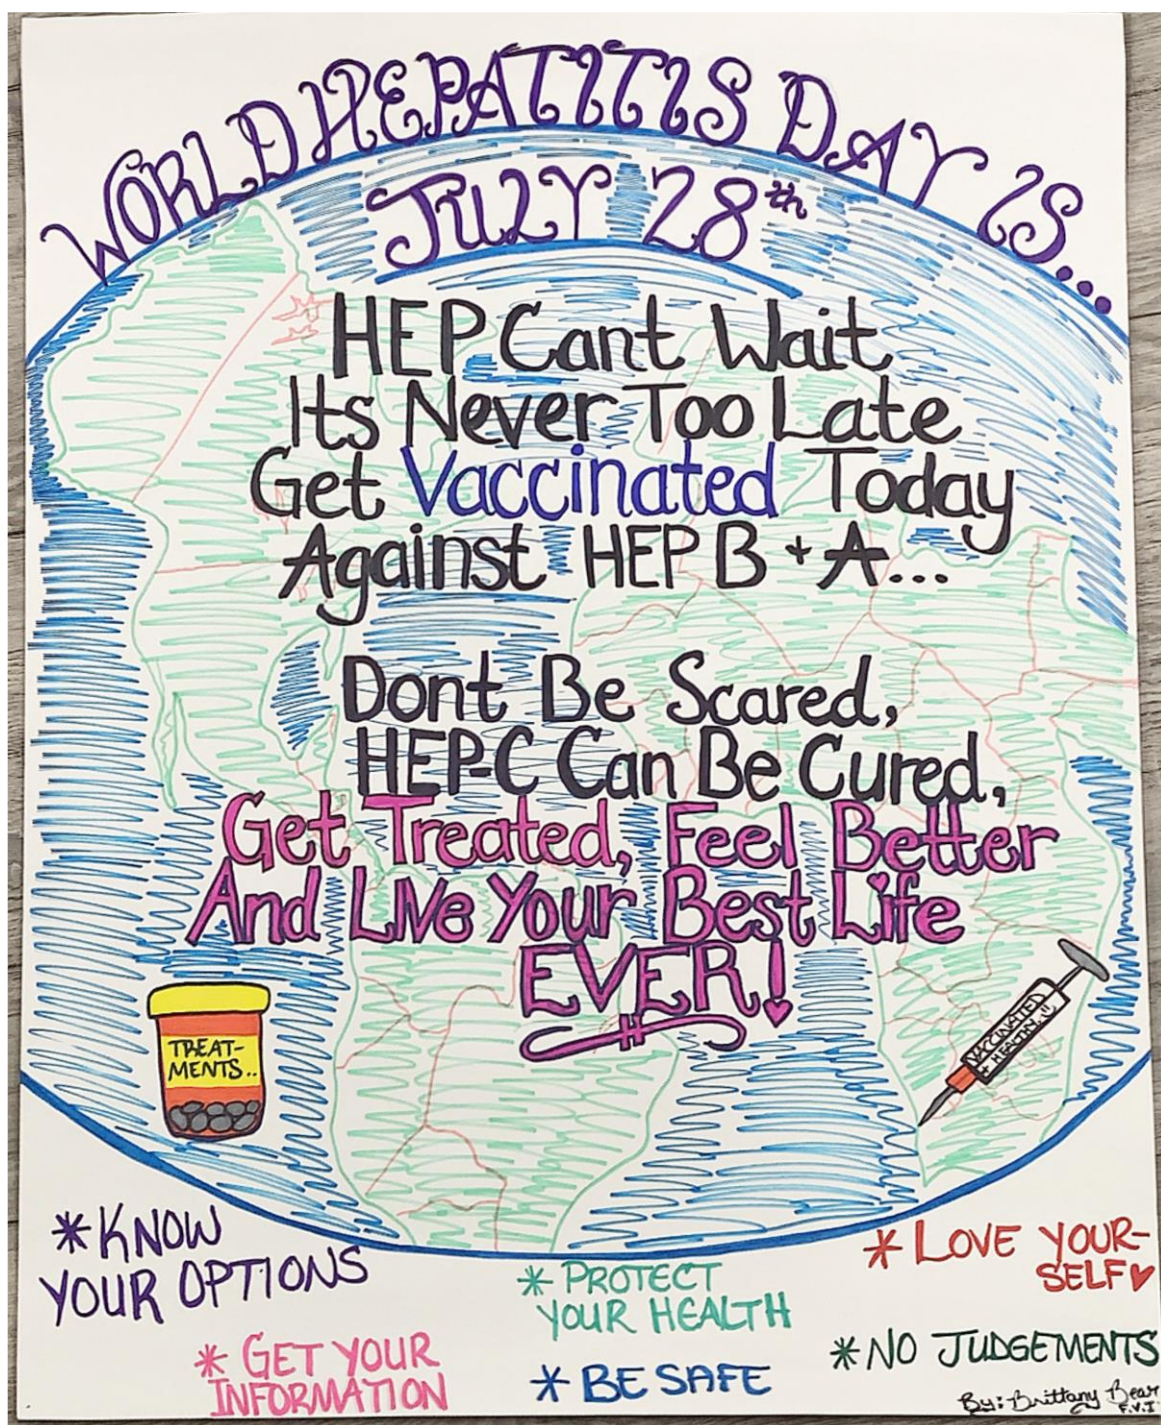 WORLD HEPATITIS DAY IS...
JULY 28th
HEP Cant Wait
Its Never Too Late
Get Vaccinated Today
Against HEP B + A...
Dont Be Scared,
HEP-C Can Be Cured,
Get Treated, Feel Better
And Live Your Best Life
EVER!
TREAT-
MENTS..
VACCINATED
+ HEALTHY :)
*KNOW
YOUR OPTIONS
*GET YOUR
INFORMATION
*PROTECT
YOUR HEALTH
*BE SAFE
*LOVE YOUR-
SELF
*NO JUDGEMENTS
By: Brittany Bear
F.V.I